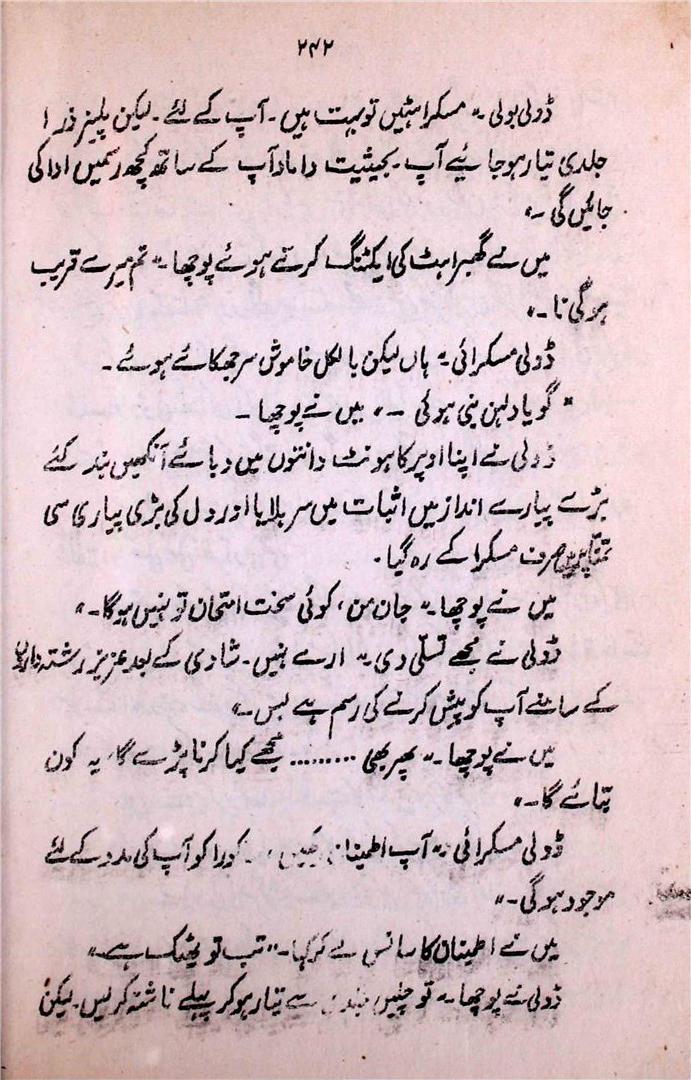 ۲۴۲
ڈولی بولی۔" مسکراہٹیں تو بہت ہیں۔ آپ کے لئے۔ لیکن پلیز ذرا
جلدی تیار ہو جائیے آپ۔ بحیثیت داماد آپ کے ساتھ کچھ رسمیں ادا کی
جائیں گی۔"
میں نے گھبراہٹ کی ایکٹنگ کرتے ہوئے پوچھا۔" تم میرے قریب
ہوگی نا۔"
ڈولی مسکرائی۔" ہاں لیکن بالکل خاموش سر جھکائے ہوئے۔
"گویا دلہن بنی ہوئی۔" میں نے پوچھا۔
ڈولی نے اپنا اوپر کا ہونٹ دانتوں میں دبائے آنکھیں بند کئے
بڑے پیارے انداز میں اثبات میں سر ہلایا اور دل کی بڑی پیاری سی
تمنا پر میں صرف مسکرا کے رہ گیا۔
میں نے پوچھا۔" جان من، کوئی سخت امتحان تو نہیں ہوگا۔"
ڈولی نے مجھے تسلی دی۔" ارے نہیں۔ شادی کے بعد عزیز رشتہ داروں
کے سامنے آپ کو پیش کرنے کی رسم ہے بس۔"
میں نے پوچھا۔" پھر بھی ......... مجھے کیا کرنا پڑے گا، یہ کون
بتائے گا۔"
ڈولی مسکرائی۔" آپ اطمینان رکھیں۔ کورا کو آپ کی مدد کے لئے
موجود ہوگی۔"
میں نے اطمینان کا سانس لے کر کہا۔" تب تو ٹھیک ہے۔"
ڈولی نے پوچھا۔" تو چلیں جلدی سے تیار ہو کر پہلے ناشتہ کر لیں۔ لیکن